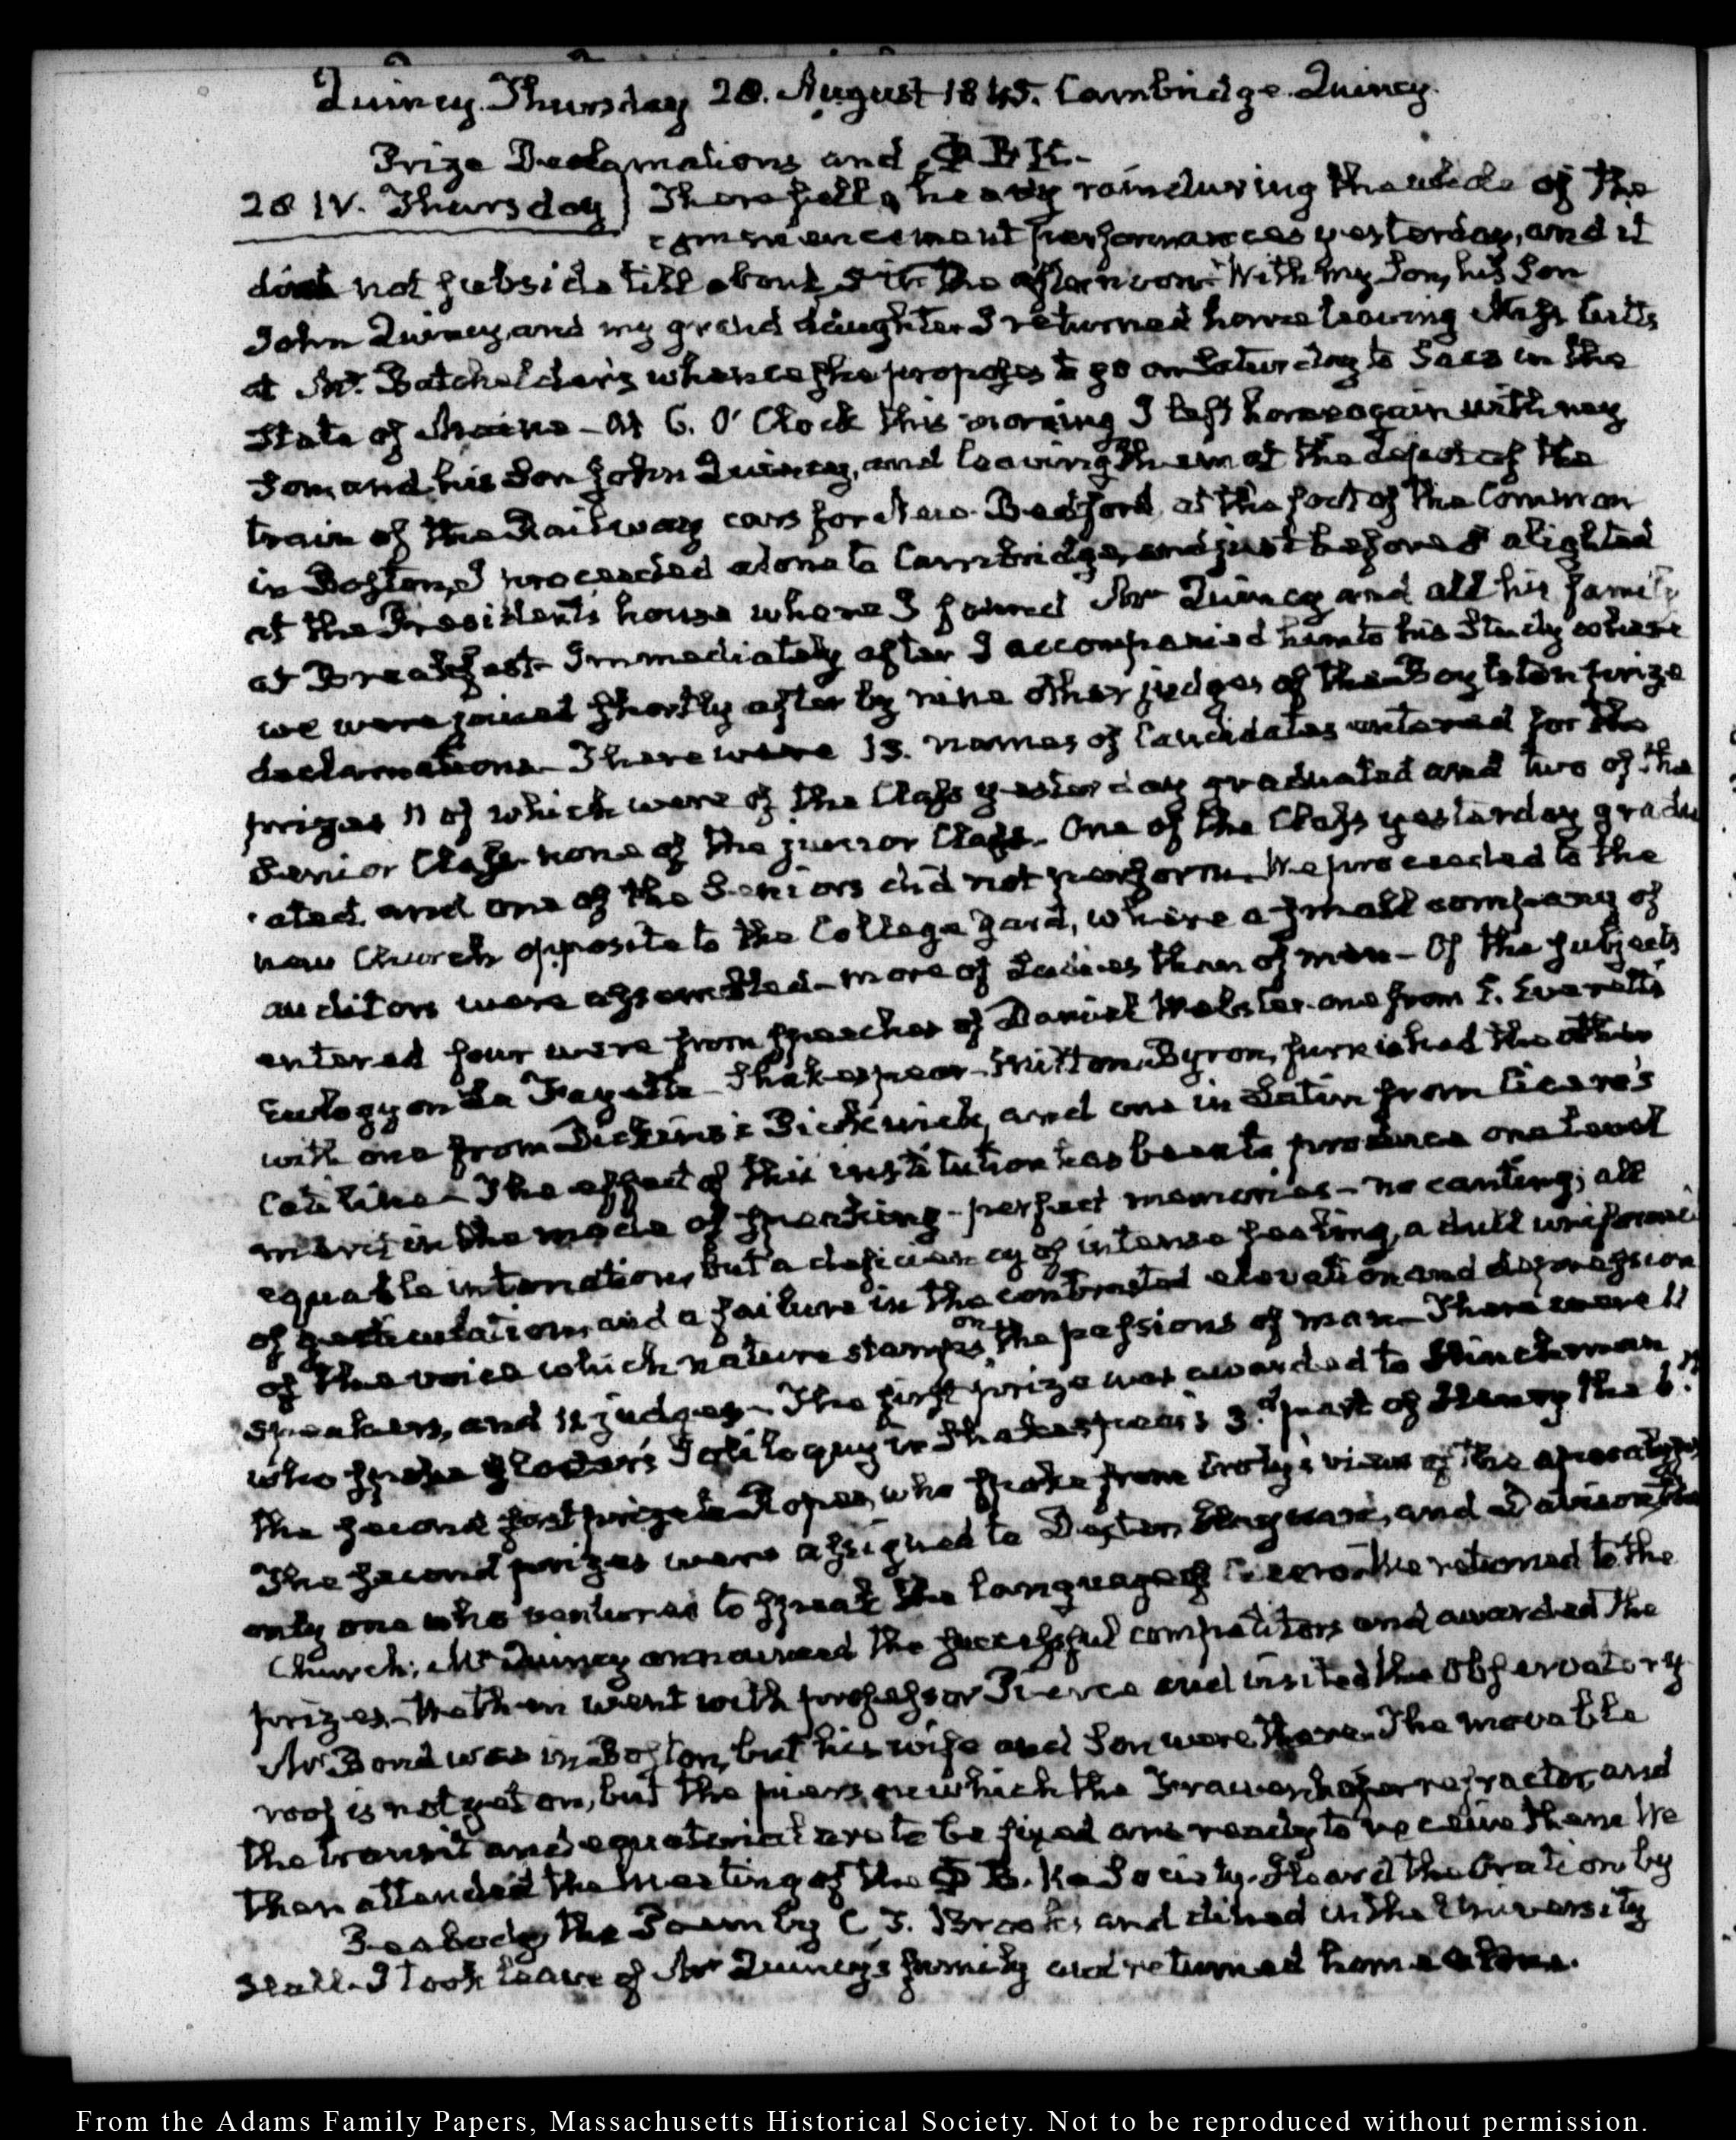 Quincy. Thursday 28. August 1845. Cambridge. Quincy.
Prize Declamations and Φ.B.K.-
28 IV. Thursday) There fell a heavy rain during the whole of the
commencement performances yesterday, and it
did not subside till about 5 in the afternoon. With my Son, his Son
John Quincy, and my grand daughter I returned home leaving Miss Cutts
at Mr. Batchelder's whence she proposes to go on Saturday to Saco in the
State of Maine - At 6. O'Clock this morning I left home again with my
Son, and his Son John Quincy, and leaving them at the depot of the
train of the Railway cars for New-Bedford, at the foot of the Common
in Boston, I proceeded alone to Cambridge and just before 8 alighted
at the President's house where I found Mr Quincy and all his family
at Breakfast- Immediately after I accompanied him to his Study where
we were joined shortly after by nine other judges of the Boylston prize
declamations- There were 13. names of Candidates entered for the
prizes 11 of which were of the Class yesterday graduated and two of the
Senior Class- none of the junior Class- One of the Class yesterday gradu
ated, and one of the Seniors did not perform. We proceeded to the
new Church opposite to the College yard, where a small company of
auditors were assembled - more of Ladies than of men - Of the subjects
entered four were from speeches of Daniel Webster- one from E. Everett's
Eulogy on La Fayette - Shakespear - Milton, Byron, furnished the others
with one from Dickens's Pickwick, and one in Latin from Cicero's
Catiline - The effect of this institution has been to produce one level
merit in the mode of speaking - perfect memories - no canting; all
equable intonation, but a deficiency of intense feeling, a dull uniformi
of gesticulation, and a failure in the contrasted elevation and depression
of the voice which nature stamps on the passions of man- There were 11
speakers, and 11 judges - The first prize was awarded to Hinckman
who spoke Gloster's Soliloquy in Shakespear's 3.d part of Henry the 6.th
the second first prize to Ropes, who spoke from Croly's view of the apocalypse
The second prizes were assigned to Dexter, and Davison the
only one who ventured to speak the language of Cicero- We returned to the
Church; Mr Quincy announced the successful competitors and awarded the
prizes- We then went with professor Pierce and visited the Observatory
Mr Bond was in Boston, but his wife and Son were there. The movable
roof is not yet on, but the piers on which the Frawenhofer refractor, and
the transit and equatorial are to be fixed are ready to receive them We
then attended the meeting of the Φ B. Ka Society. Heard the Oration by
Peabody, the Poem by C. T. Brooks, and dined in the University
Hall- I took leave of Mr Quincy's family and returned home alone.
From the Adams Family Papers, Massachusetts Historical Society. Not to be reproduced without permission.